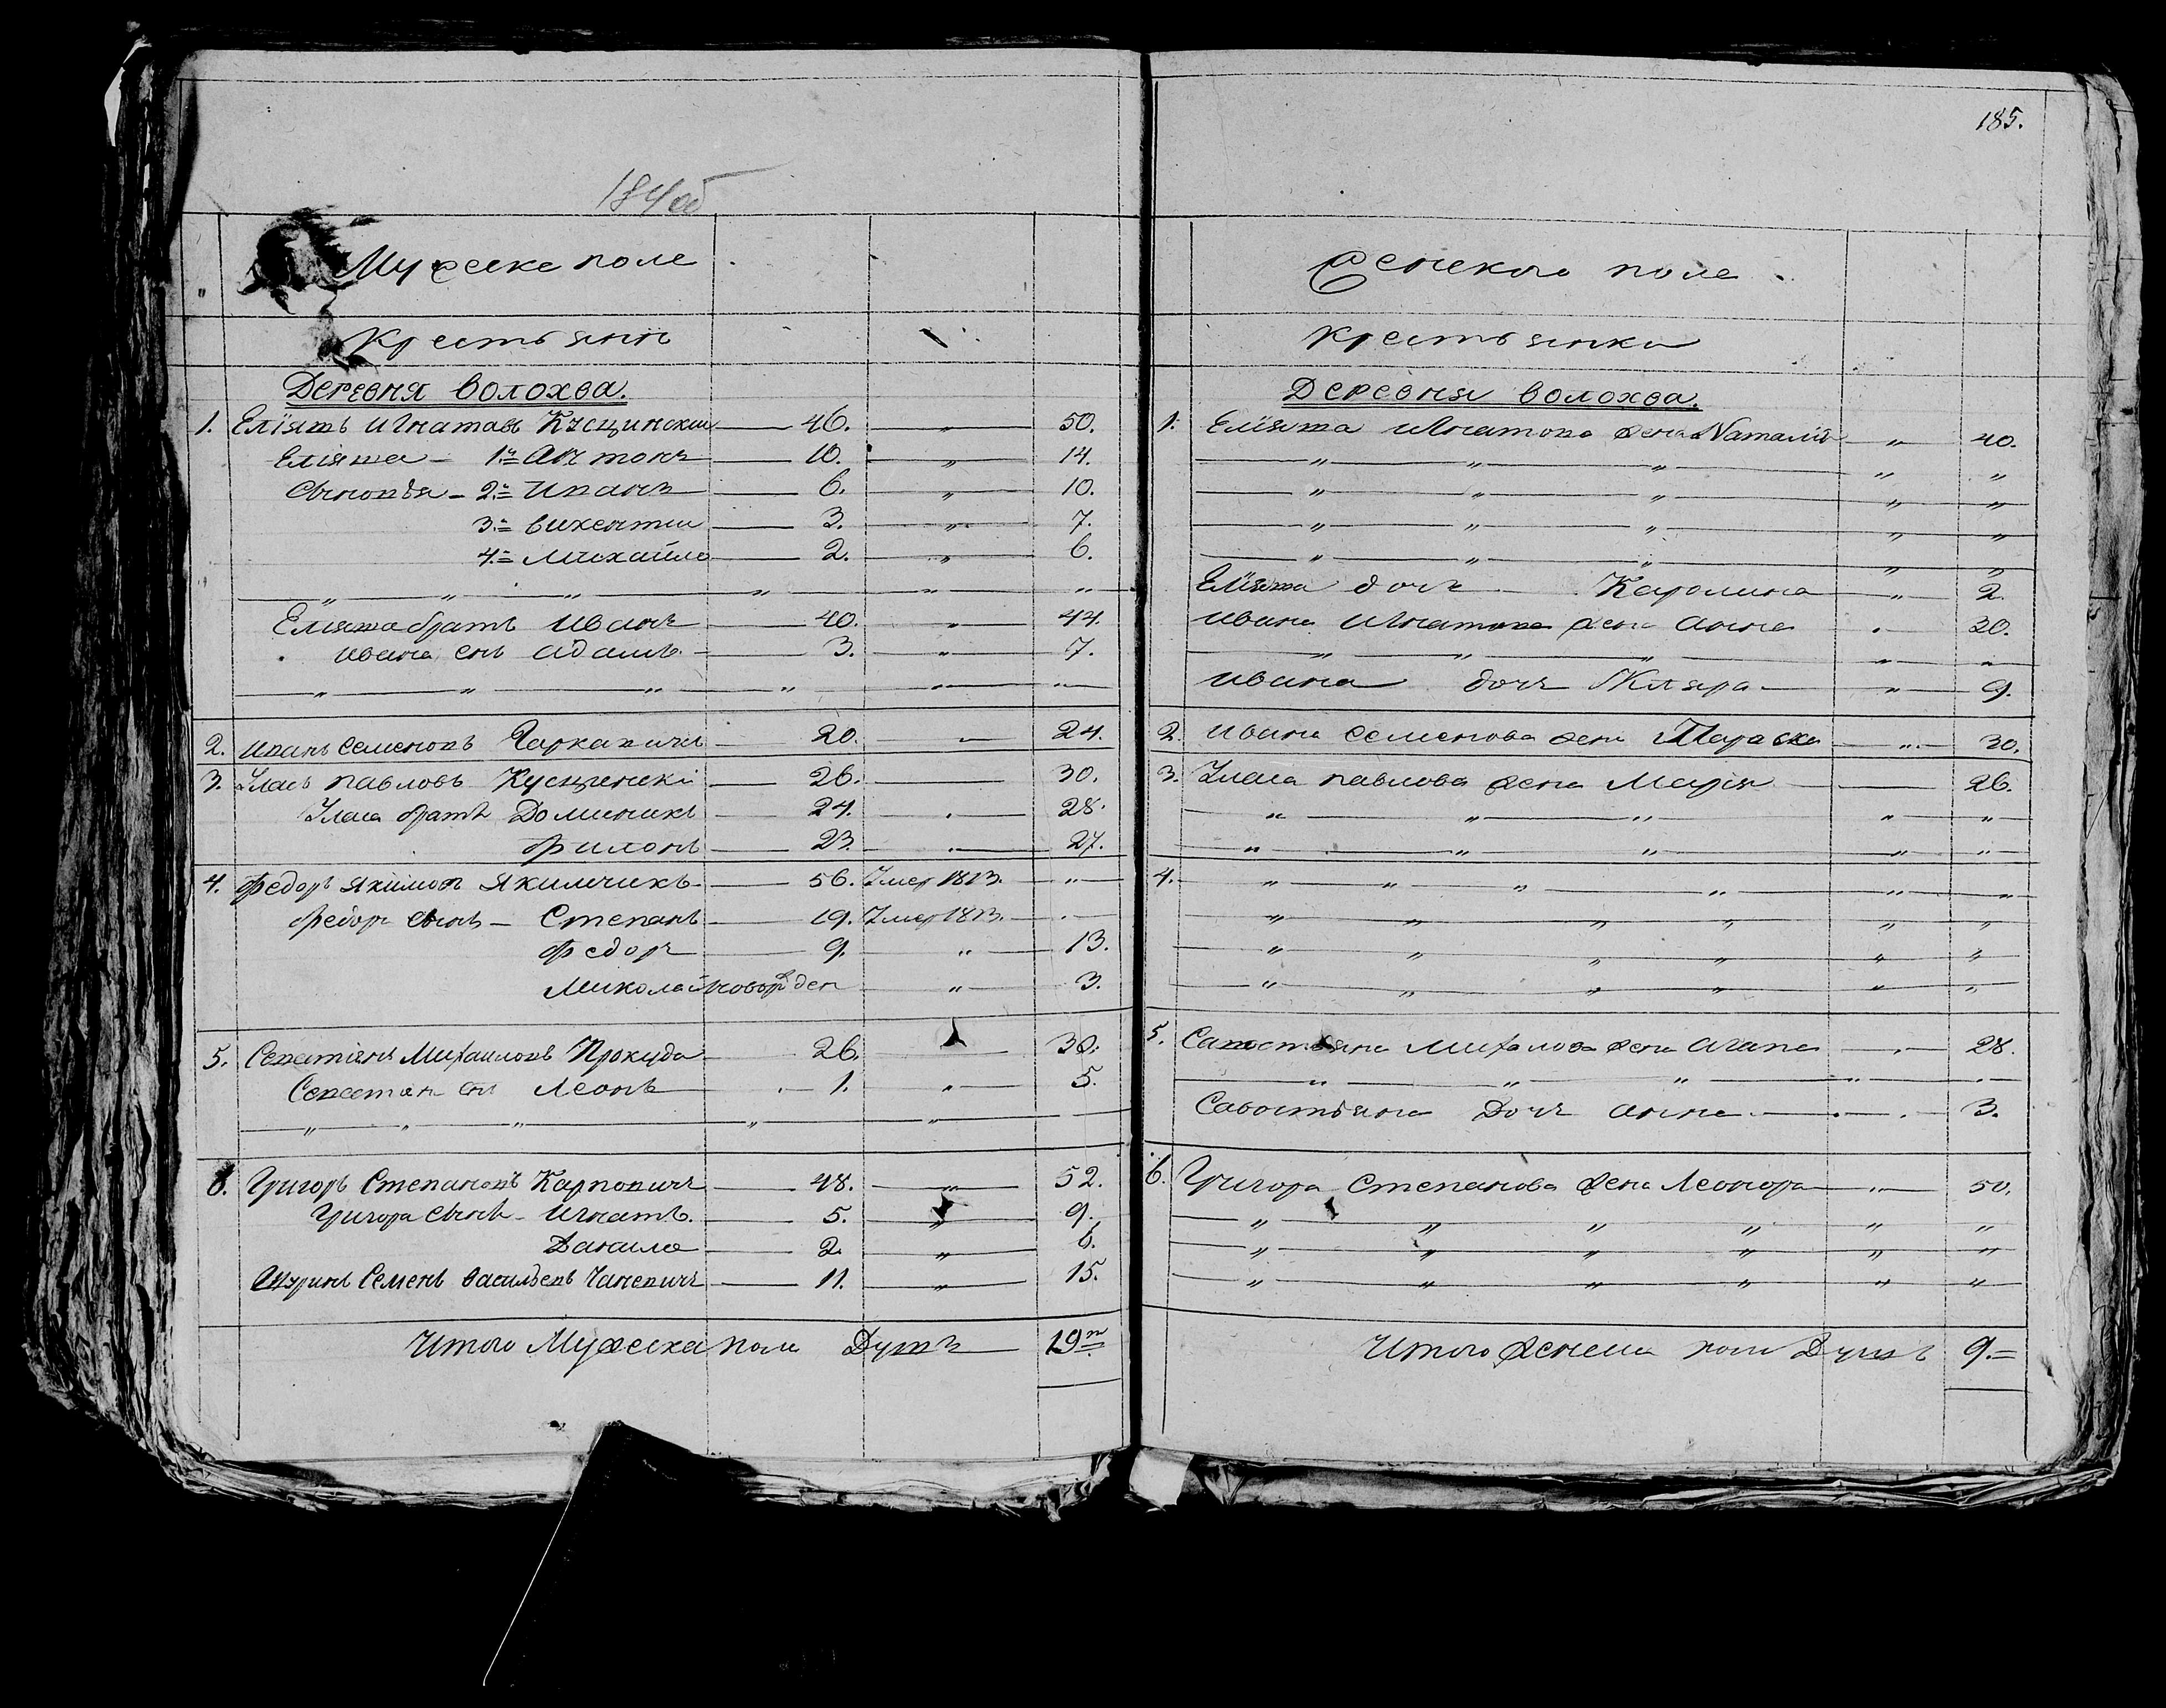 184об
Мужеске поле
Крестьянъ
Деревня Волохва.
1. Еліяшъ Игнатовъ Кусцинскіи 46. „ 50.
Еліяша 1й Антонъ 10. „ 14.
Сыновья 2й Иванъ 6. „ 10.
3й Викентіи 3. „ 7.
4й Михайло 2. „ 6.
„ „ „ „ „ „
Еліяша братъ Иванъ 40. „ 44.
Ивана снъ Адамъ 3. „ 7.
„ „ „ „ „ „
2. Иванъ Семеновъ 20. „ 24.
3. Уласъ Павловъ Кусцинскі 26. 30.
Уласа братъ Доминикъ 24. 28.
Филонъ 23. 27.
4. Федоръ Якимовъ Якимчикъ 56. Умер 1813. „
Федор сынъ Степанъ 19. Умер 1813.
Федоръ 9. „ 13.
Миколай новорожден „ 3.
5. Михаиловъ Прокуда 26. 30.
снъ Леонъ 1. „ 5.
„ „ „ „ „
6. Григоръ Степановъ Карповичъ 48. „ 52.
Григора сынъ Игнатъ 5. „ 9.
Данило 2. „ 6.
Шуринъ Семенъ Васильевъ 11. „ 15.
Итого Мужеска поля Душъ 19
185.
Женского поле
Крестьянки
Деревня Волохва.
1. Еліяша Игнатова жена Наталія „ 40.
„ „ „ „ „
„ „ „ „ „
„ „ „ „ „
„ „ „ „ „
Еліяша дочь Каролина „ 2.
Ивана Игнатова жена Анна 30.
„ „ „ „ „
Ивана дочь Кляра „ 9.
2. Ивана Семенова жена Параска „ 30.
3. Уласа Павлова жена Марія 26.
„ „ „ „ „
„ „ „ „ „
4. „ „ „ „ „ „
„ „ „ „ „ „
„ „ „ „ „ „
„ „ „ „ „ „
5. Савостьяна Михалова жена Агапа 28.
„ „ „ „
Савостьяна Дочь Анна 3.
6. Григора Степанова жена Леонора „ 50.
„ „ „ „ „ „
„ „ „ „ „ „
„ „ „ „ „ „
Итого Душъ 9.